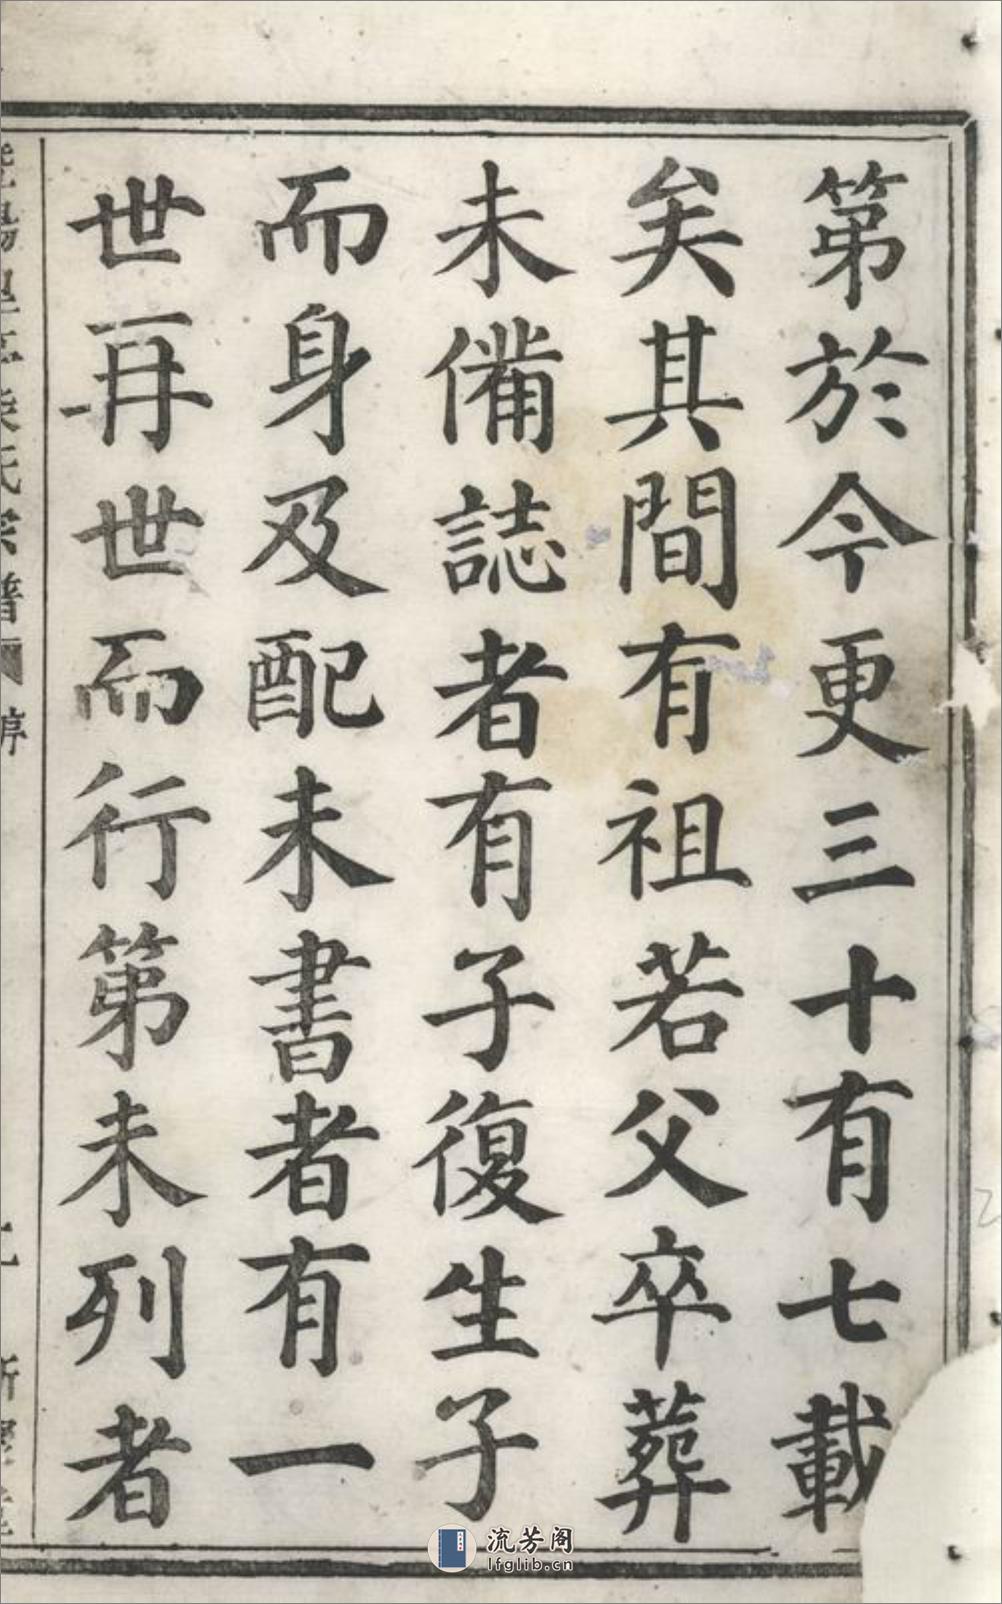 第於今更三十有七載
矣其間有祖若父卒葬
未備誌者有子復生子
而身及配未書者有一
世再世而行第未列者
氏宗譜
序
流芳阁
lfglib.cn